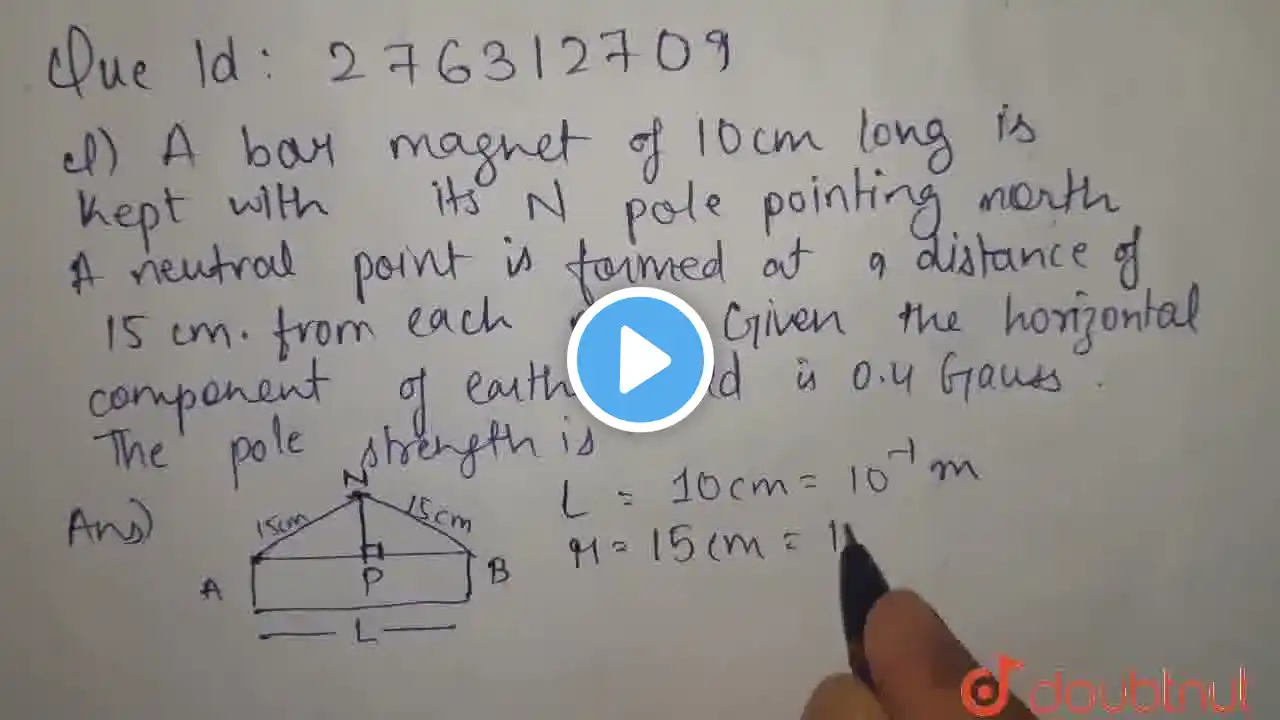 Que Id: 276312709
Q) A bar magnet of 10cm long is
kept with its N pole pointing north
A neutral point is formed at a distance of
15 cm. from each Given the horizontal
component of earth is 0.4 Gauss.
The pole strength is
Ans)
N
15cm
15cm
A
P
B
L
L = 10cm = 10⁻¹ m
r = 15cm = 1
doubtnut